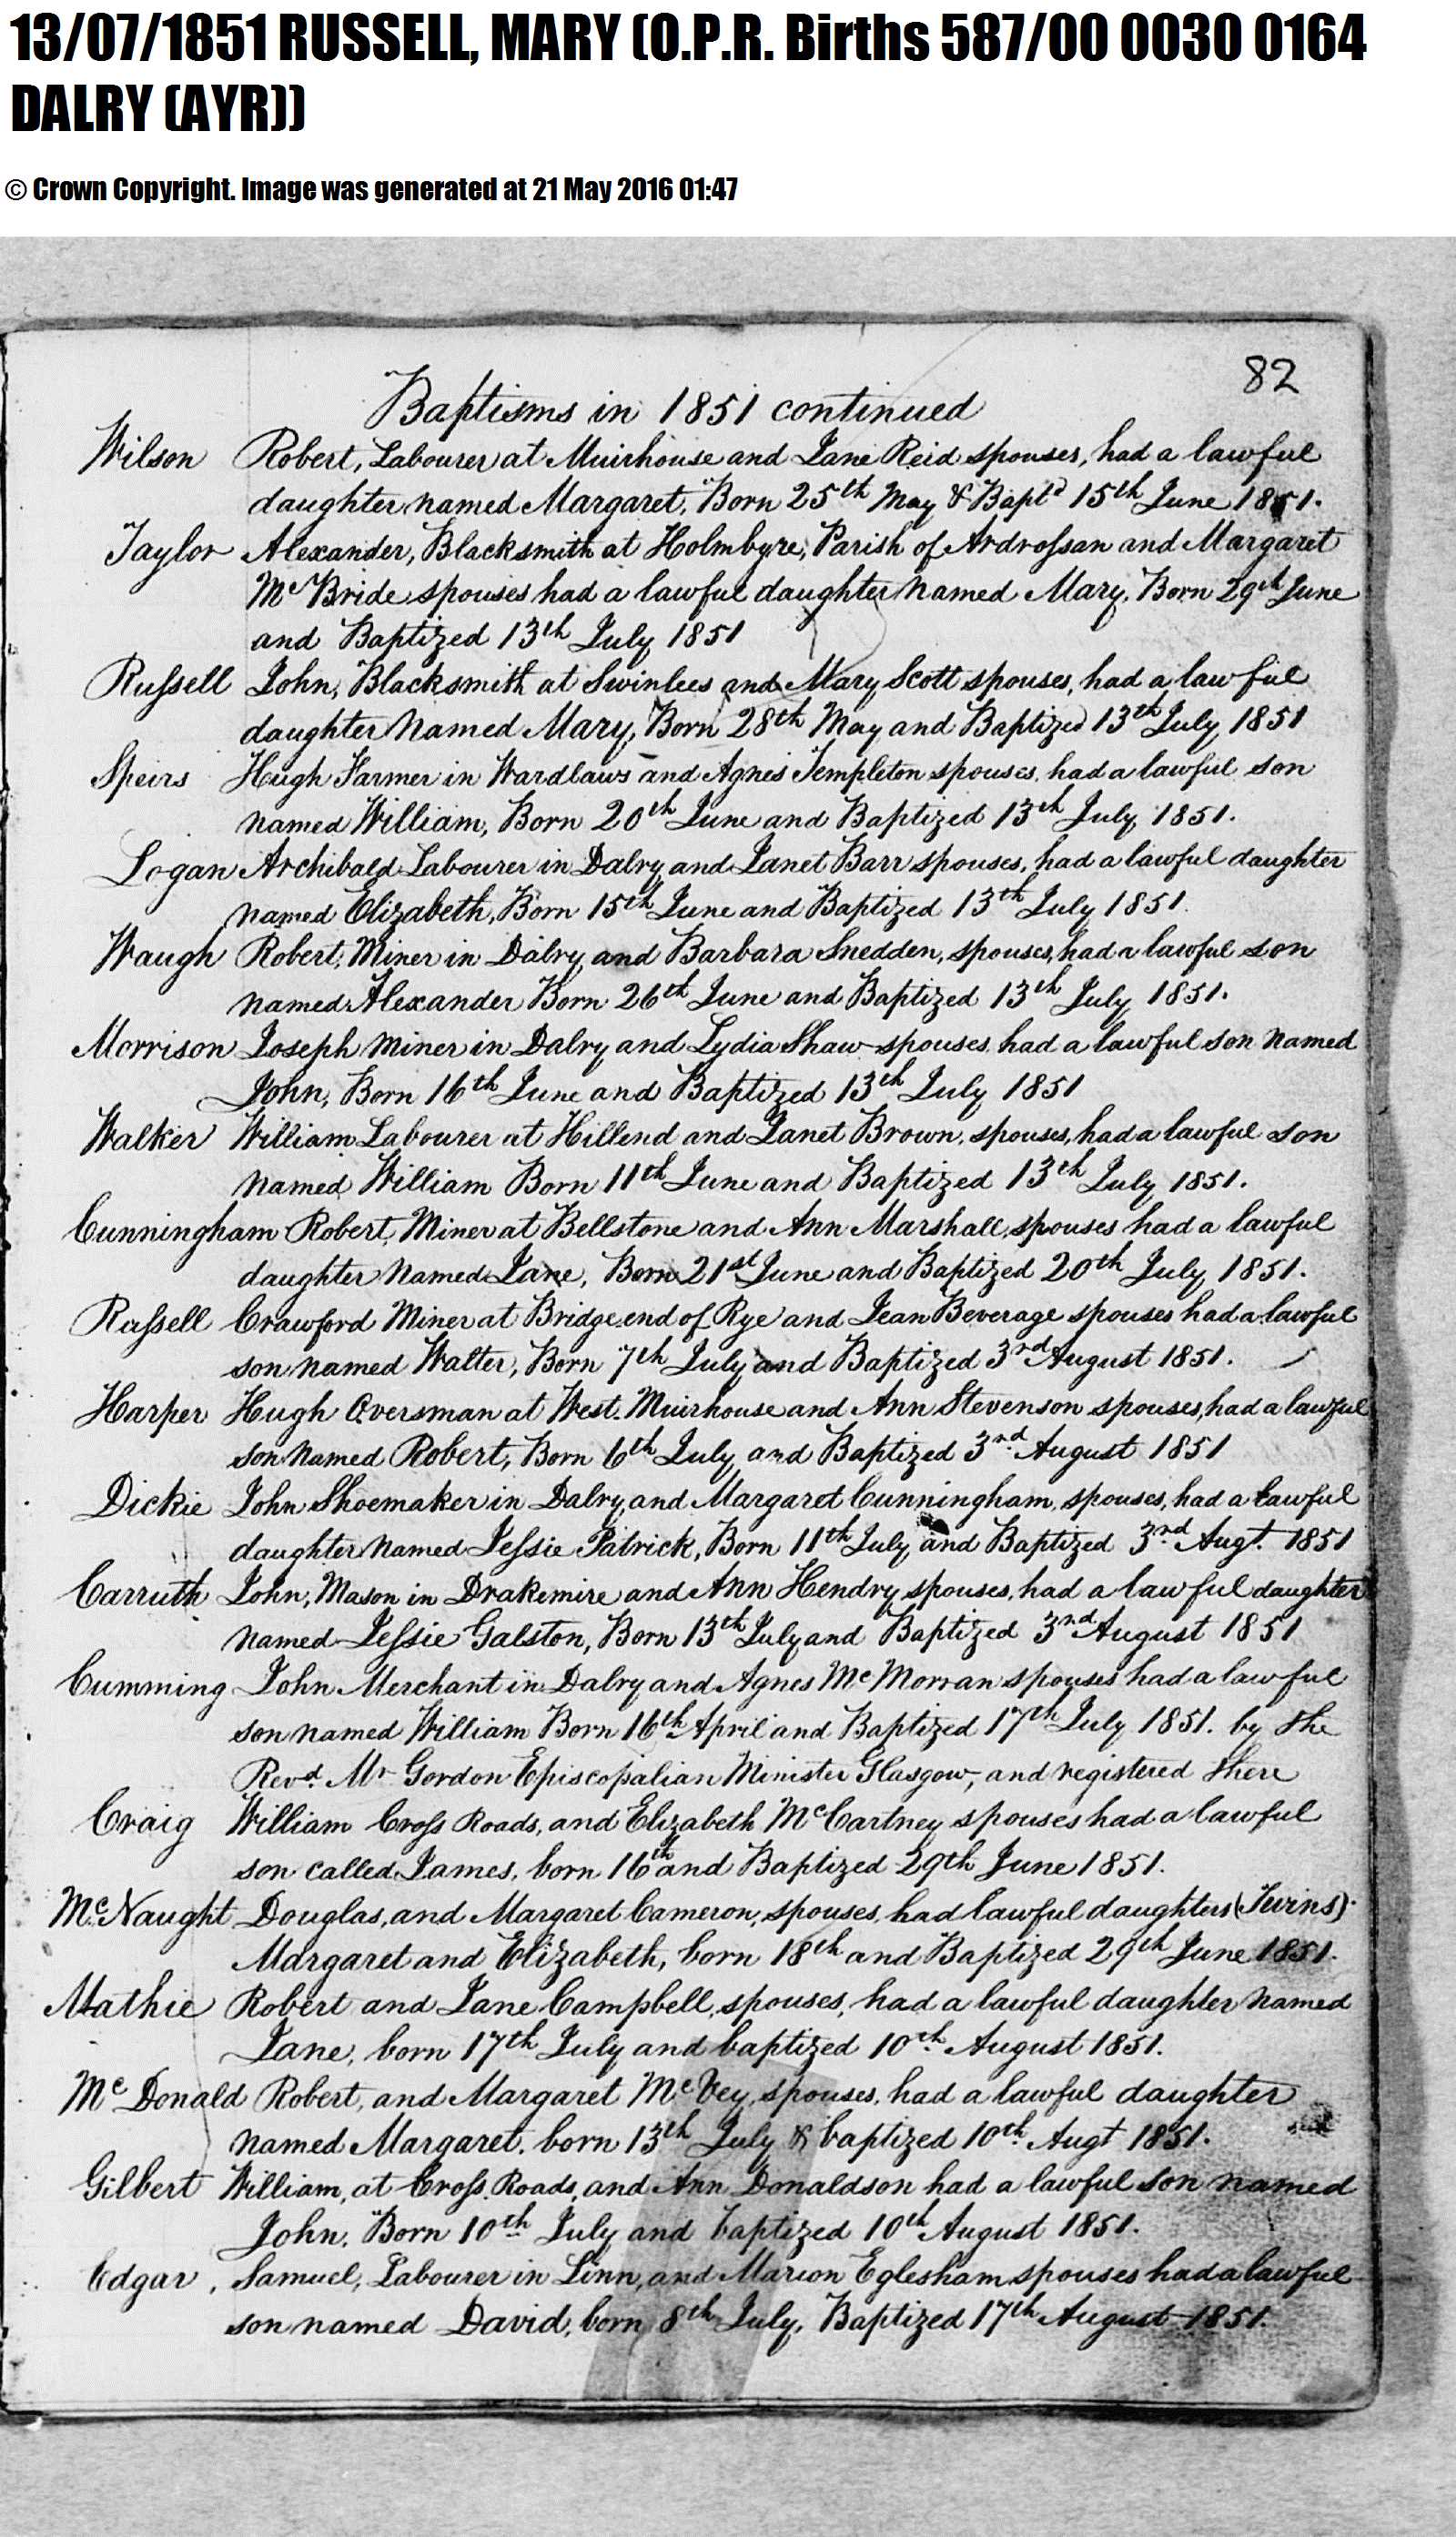 13/07/1851 RUSSELL, MARY (O.P.R. Births 587/00 0030 0164
DALRY (AYR))
© Crown Copyright. Image was generated at 21 May 2016 01:47
82
Baptisms in 1851 continued
Wilson Robert, Labourer at Muirhouse and Jane Reid spouses, had a lawful
daughter named Margaret, Born 25th May & Baptd 15th June 1851.
Taylor Alexander, Blacksmith at Holmbyre, Parish of Ardrossan and Margaret
Mc Bride spouses had a lawful daughter named Mary, Born 29th June
and Baptized 13th July 1851
Russell John, Blacksmith at Swinlees and Mary Scott spouses, had a lawful
daughter named Mary, Born 28th May and Baptized 13th July 1851
Speirs Hugh Farmer in Wardlaws and Agnes Templeton spouses, had a lawful son
named William, Born 20th June and Baptized 13th July 1851.
Logan Archibald Labourer in Dalry and Janet Barr spouses, had a lawful daughter
named Elizabeth, Born 15th June and Baptized 13th July 1851.
Waugh Robert, Miner in Dalry and Barbara Snedden, spouses, had a lawful son
named Alexander Born 26th June and Baptized 13th July 1851.
Morrison Joseph Miner in Dalry and Lydia Shaw spouses had a lawful son named
John, Born 16th June and Baptized 13th July 1851
Walker William Labourer at Hillend and Janet Brown, spouses, had a lawful son
named William Born 11th June and Baptized 13th July 1851.
Cunningham Robert, Miner at Bellstone and Ann Marshall, spouses had a lawful
daughter named Jane, Born 21st June and Baptized 20th July 1851.
Russell Crawford Miner at Bridgeend of Rye and Jean Beverage spouses had a lawful
son named Walter, Born 7th July and Baptized 3rd August 1851.
Harper Hugh Oversman at West Muirhouse and Ann Stevenson spouses, had a lawful
son named Robert, Born 6th July and Baptized 3rd August 1851
Dickie John Shoemaker in Dalry and Margaret Cunningham, spouses, had a lawful
daughter named Jessie Patrick, Born 11th July and Baptized 3rd Augt. 1851
Carruth John, Mason in Drakemire and Ann Hendry spouses, had a lawful daughter
named Jessie Galston, Born 13th July and Baptized 3rd August 1851
Cumming John Merchant in Dalry and Agnes Mc Morran spouses had a lawful
son named William Born 16th April and Baptized 17th July 1851. by the
Revd. Mr Gordon Episcopalian Minister Glasgow, and registered there
Craig William Cross Roads, and Elizabeth McCartney spouses had a lawful
son called James, born 16th and Baptized 29th June 1851.
Mc Naught Douglas, and Margaret Cameron, spouses, had lawful daughters (Twins)
Margaret and Elizabeth, born 18th and Baptized 29th June 1851.
Mathie Robert and Jane Campbell, spouses, had a lawful daughter named
Jane, born 17th July and baptized 10th August 1851.
Mc Donald Robert, and Margaret Mc Vey, spouses, had a lawful daughter
named Margaret, born 13th July & baptized 10th Augt 1851.
Gilbert William, at Cross Roads, and Ann Donaldson had a lawful son named
John, Born 10th July and baptized 10th August 1851.
Edgar, Samuel, Labourer in Linn, and Marion Eglesham spouses had a lawful
son named David, born 8th July, Baptized 17th August 1851.